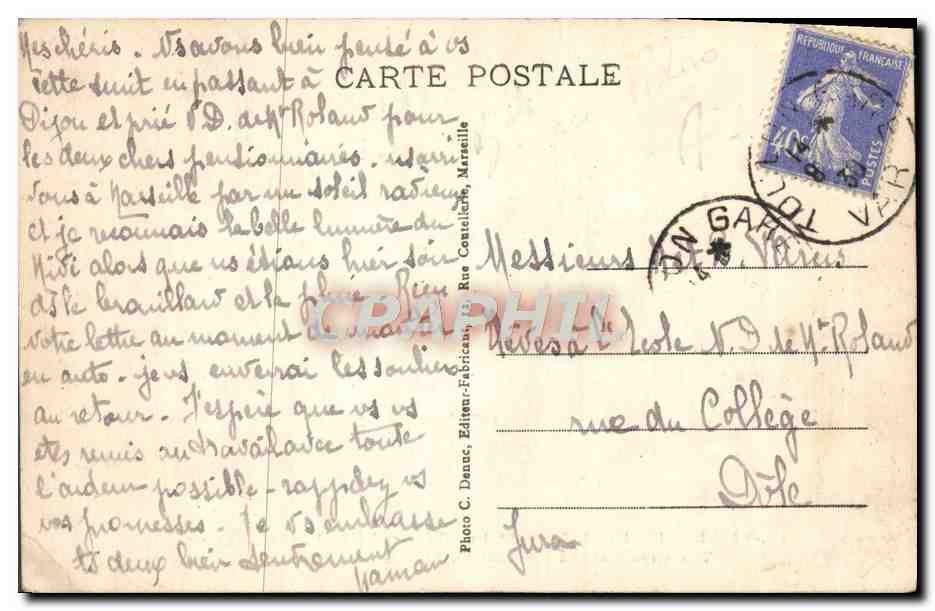 Mes chéris. Ns avons bien pensé à vs
cette nuit en passant à
Dijon et prié N D. de Mt Roland pour
les deux chers pensionnaires. n
vons à Marseille par un soleil radieux
et je reconnais la belle lumière du
Midi alors que ns étions hier soir
ds le brouillard et la pluie. Bien
votre lettre au moment de monter
en auto. je vs enverrai les souliers
au retour. J'espère que vs vs
êtes remis au travail avec toute
l'ardeur possible - rappelez vs
vos promesses. Je vs embrasse
ts deux bien tendrement
Maman
CARTE POSTALE
Photo C. Denuc, Editeur-Fabricant, Rue Coutellerie, Marseille
REPUBLIQUE FRANÇAISE
40c
POSTES
TOULON
VAR
ON GARE
Messieurs
Elèves à l'Ecole N. D de Mt Roland
rue du Collège
Dôle
Jura
CPAPHIL